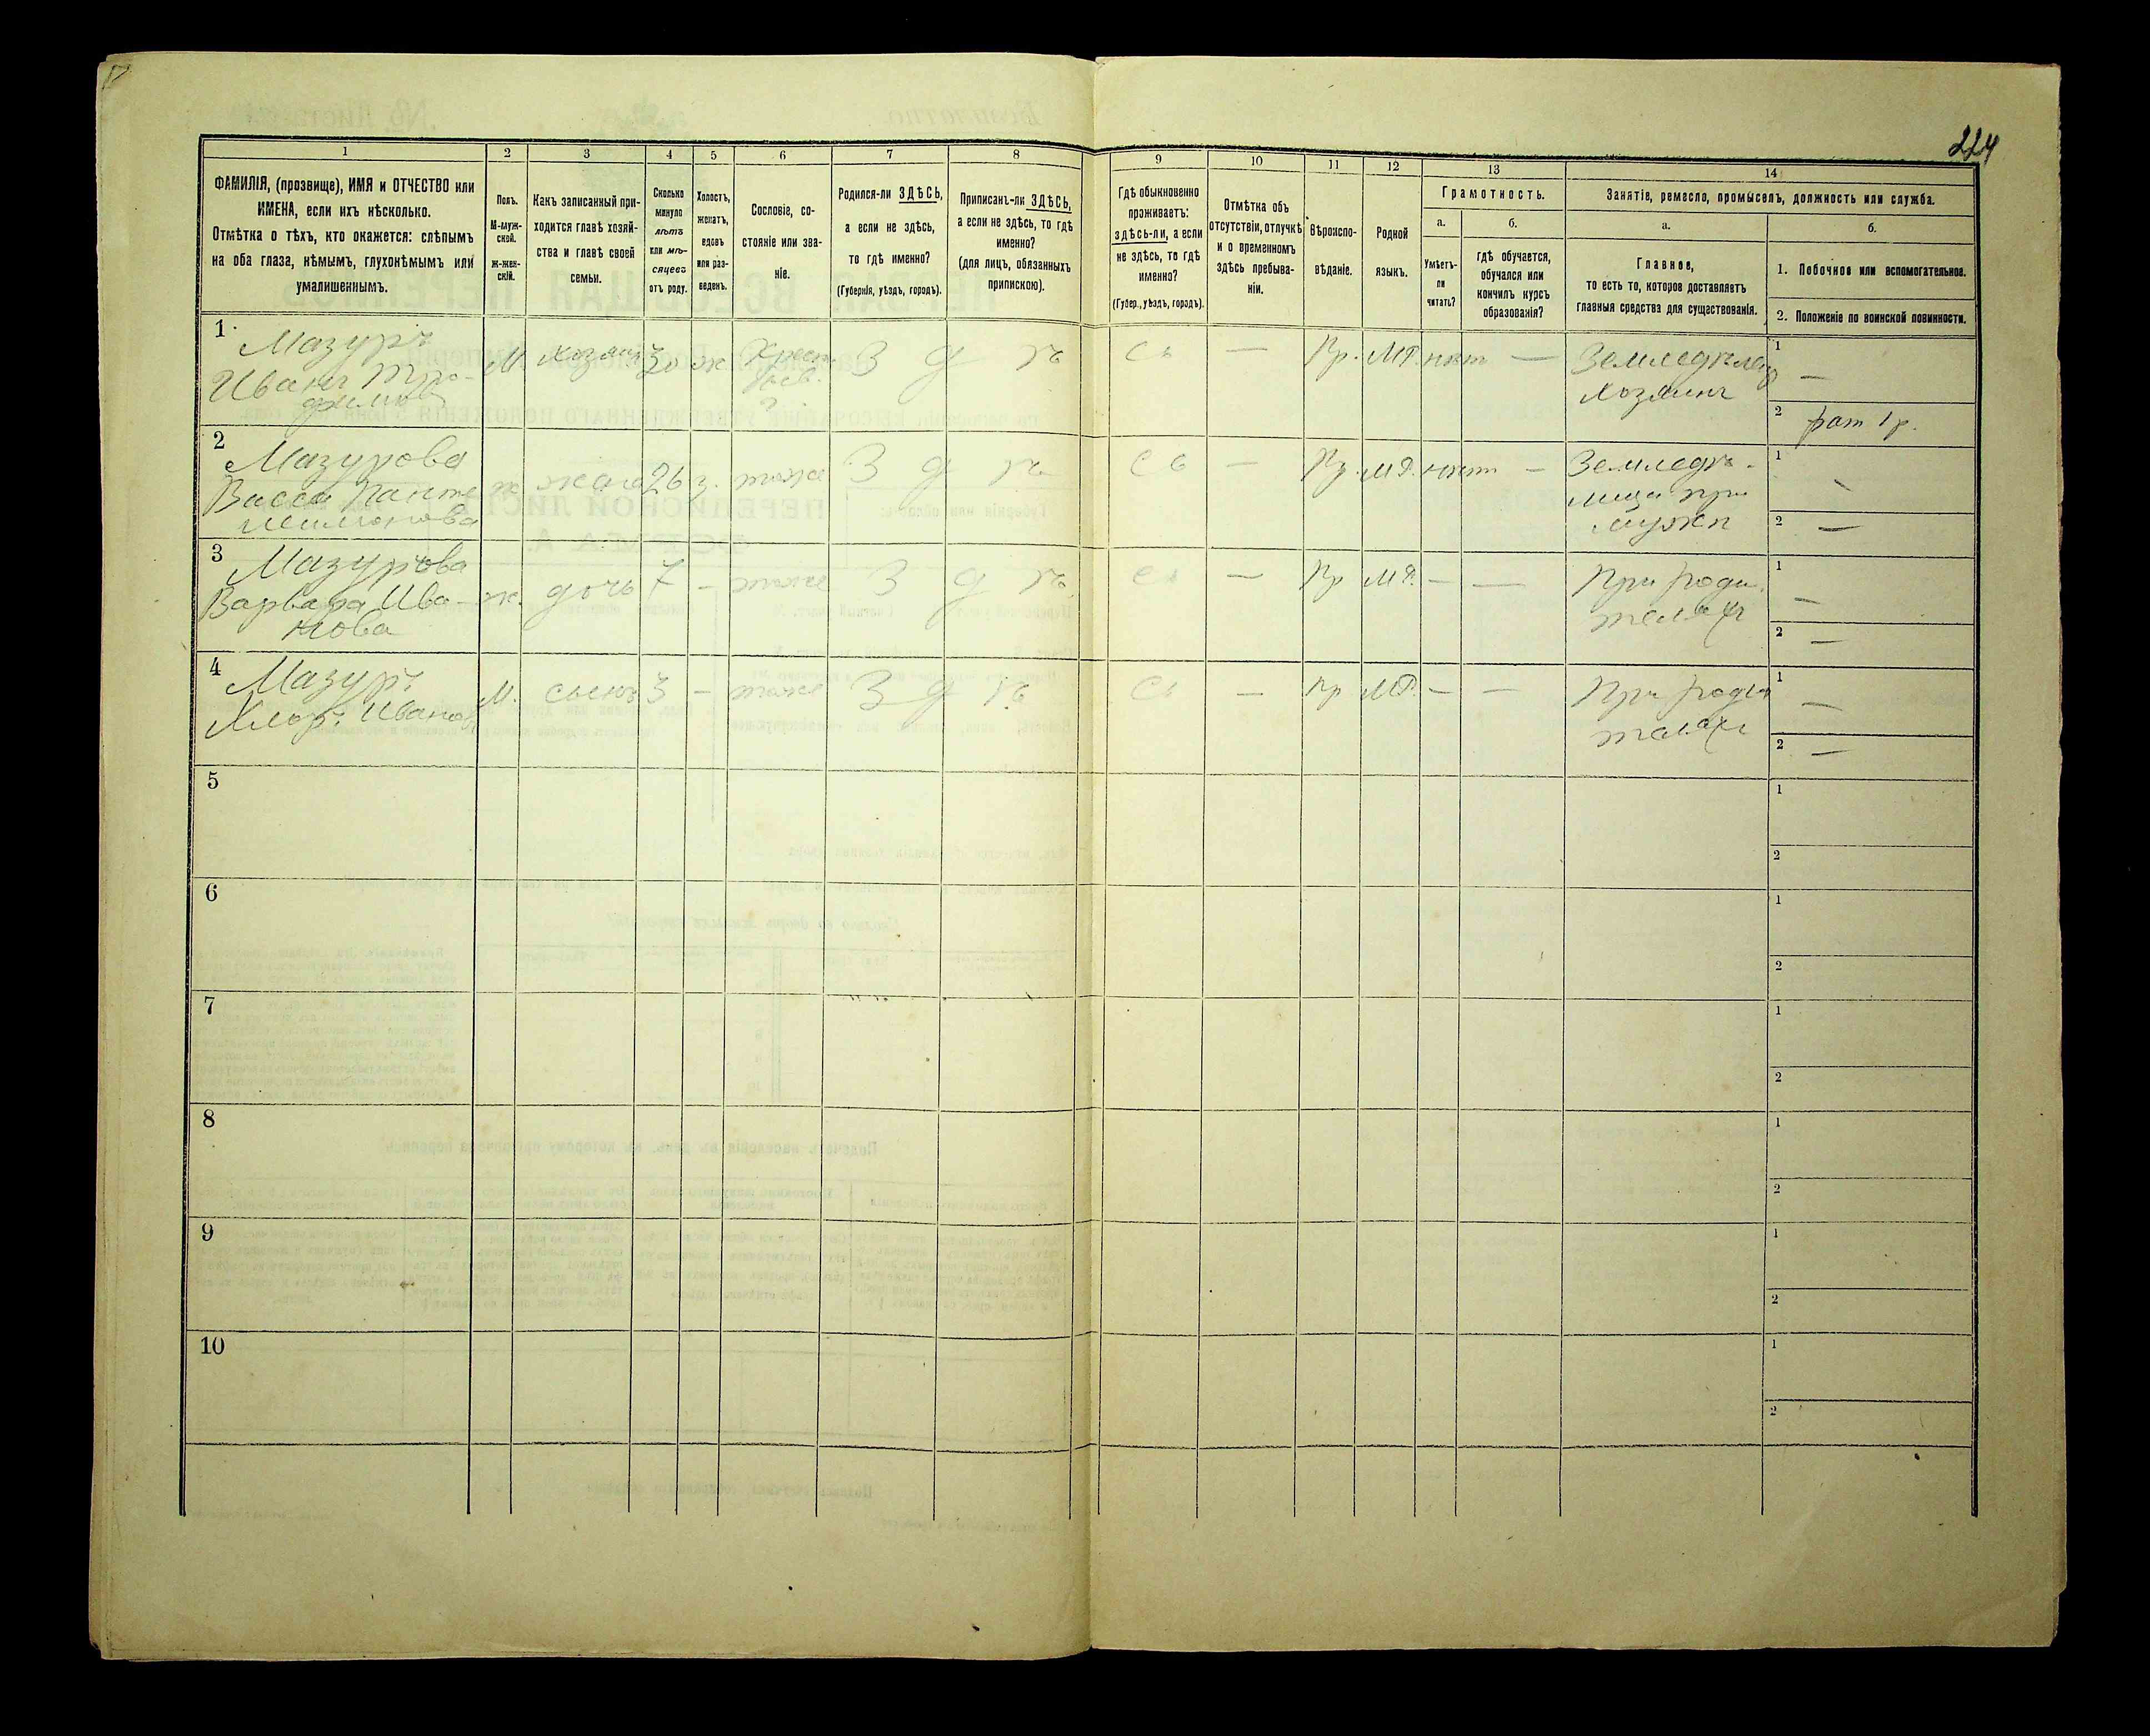 224
1
2
3
4
5
6
7
8
9
10
11
12
13
14
ФАМИЛІЯ, (прозвище), ИМЯ и ОТЧЕСТВО или
ИМЕНА, если ихъ нѣсколько.
Отмѣтка о тѣхъ, кто окажется: слѣпымъ
на оба глаза, нѣмымъ, глухонѣмымъ или
умалишеннымъ.
Полъ.
М-муж-
ской.
ж-жен-
скій.
Какъ записанный при-
ходится главѣ хозяй-
ства и главѣ своей
семьи.
Сколько
минуло
лѣтъ
или мѣ-
сяцевъ
отъ роду.
Холостъ,
женатъ,
вдовъ
или раз-
веденъ.
Сословіе, со-
стояніе или зва-
ніе.
Родился-ли ЗДѢСЬ,
а если не здѣсь,
то гдѣ именно?
(Губернія, уѣздъ, городъ).
Приписанъ-ли ЗДѢСЬ,
а если не здѣсь, то гдѣ
именно?
(для лицъ, обязанныхъ
припискою).
Гдѣ обыкновенно
проживаетъ:
здѣсь-ли, а если
не здѣсь, то гдѣ
именно?
(Губер., уѣздъ, городъ).
Отмѣтка объ
отсутствіи, отлучкѣ
и о временномъ
здѣсь пребыва-
ніи.
Вѣроиспо-
вѣданіе.
Родной
языкъ.
Грамотность.
а.
Умѣетъ-
ли
читать?
б.
гдѣ обучается,
обучался или
кончилъ курсъ
образованія?
Занятіе, ремесло, промыселъ, должность или служба.
а.
Главное,
то есть то, которое доставляетъ
главныя средства для существованія.
б.
1. Побочное или вспомогательное.
2. Положеніе по воинской повинности.
1
Мазуръ
Иванъ Тро-
фимов
М. хозяинъ 30 ж Хрест.
З д ѣ с ь — Пр. М.Р. нѣтъ — Земледѣлецъ
хозяинъ
1 —
2 рат 1 р.
2
Мазурова
Васса Панте
леимонова
ж жена 26 з. тоже З д ѣ с ь — Пр. М.Р. нѣтъ — Земледѣ-
лица при
мужѣ
1 -
2 —
3
Мазурова
Варвара Ива-
нова
ж. дочь 7 - тоже З д ѣ с ь — Пр М.Р. — — При роди
теляхъ
1 —
2 —
4
Мазуръ
Иванов
М. сынъ 3 - тоже З д ѣ с ь — Пр М.Р. — — При роди
теляхъ
1 —
2 —
5
1
2
6
1
2
7
1
2
8
1
2
9
1
2
10
1
2